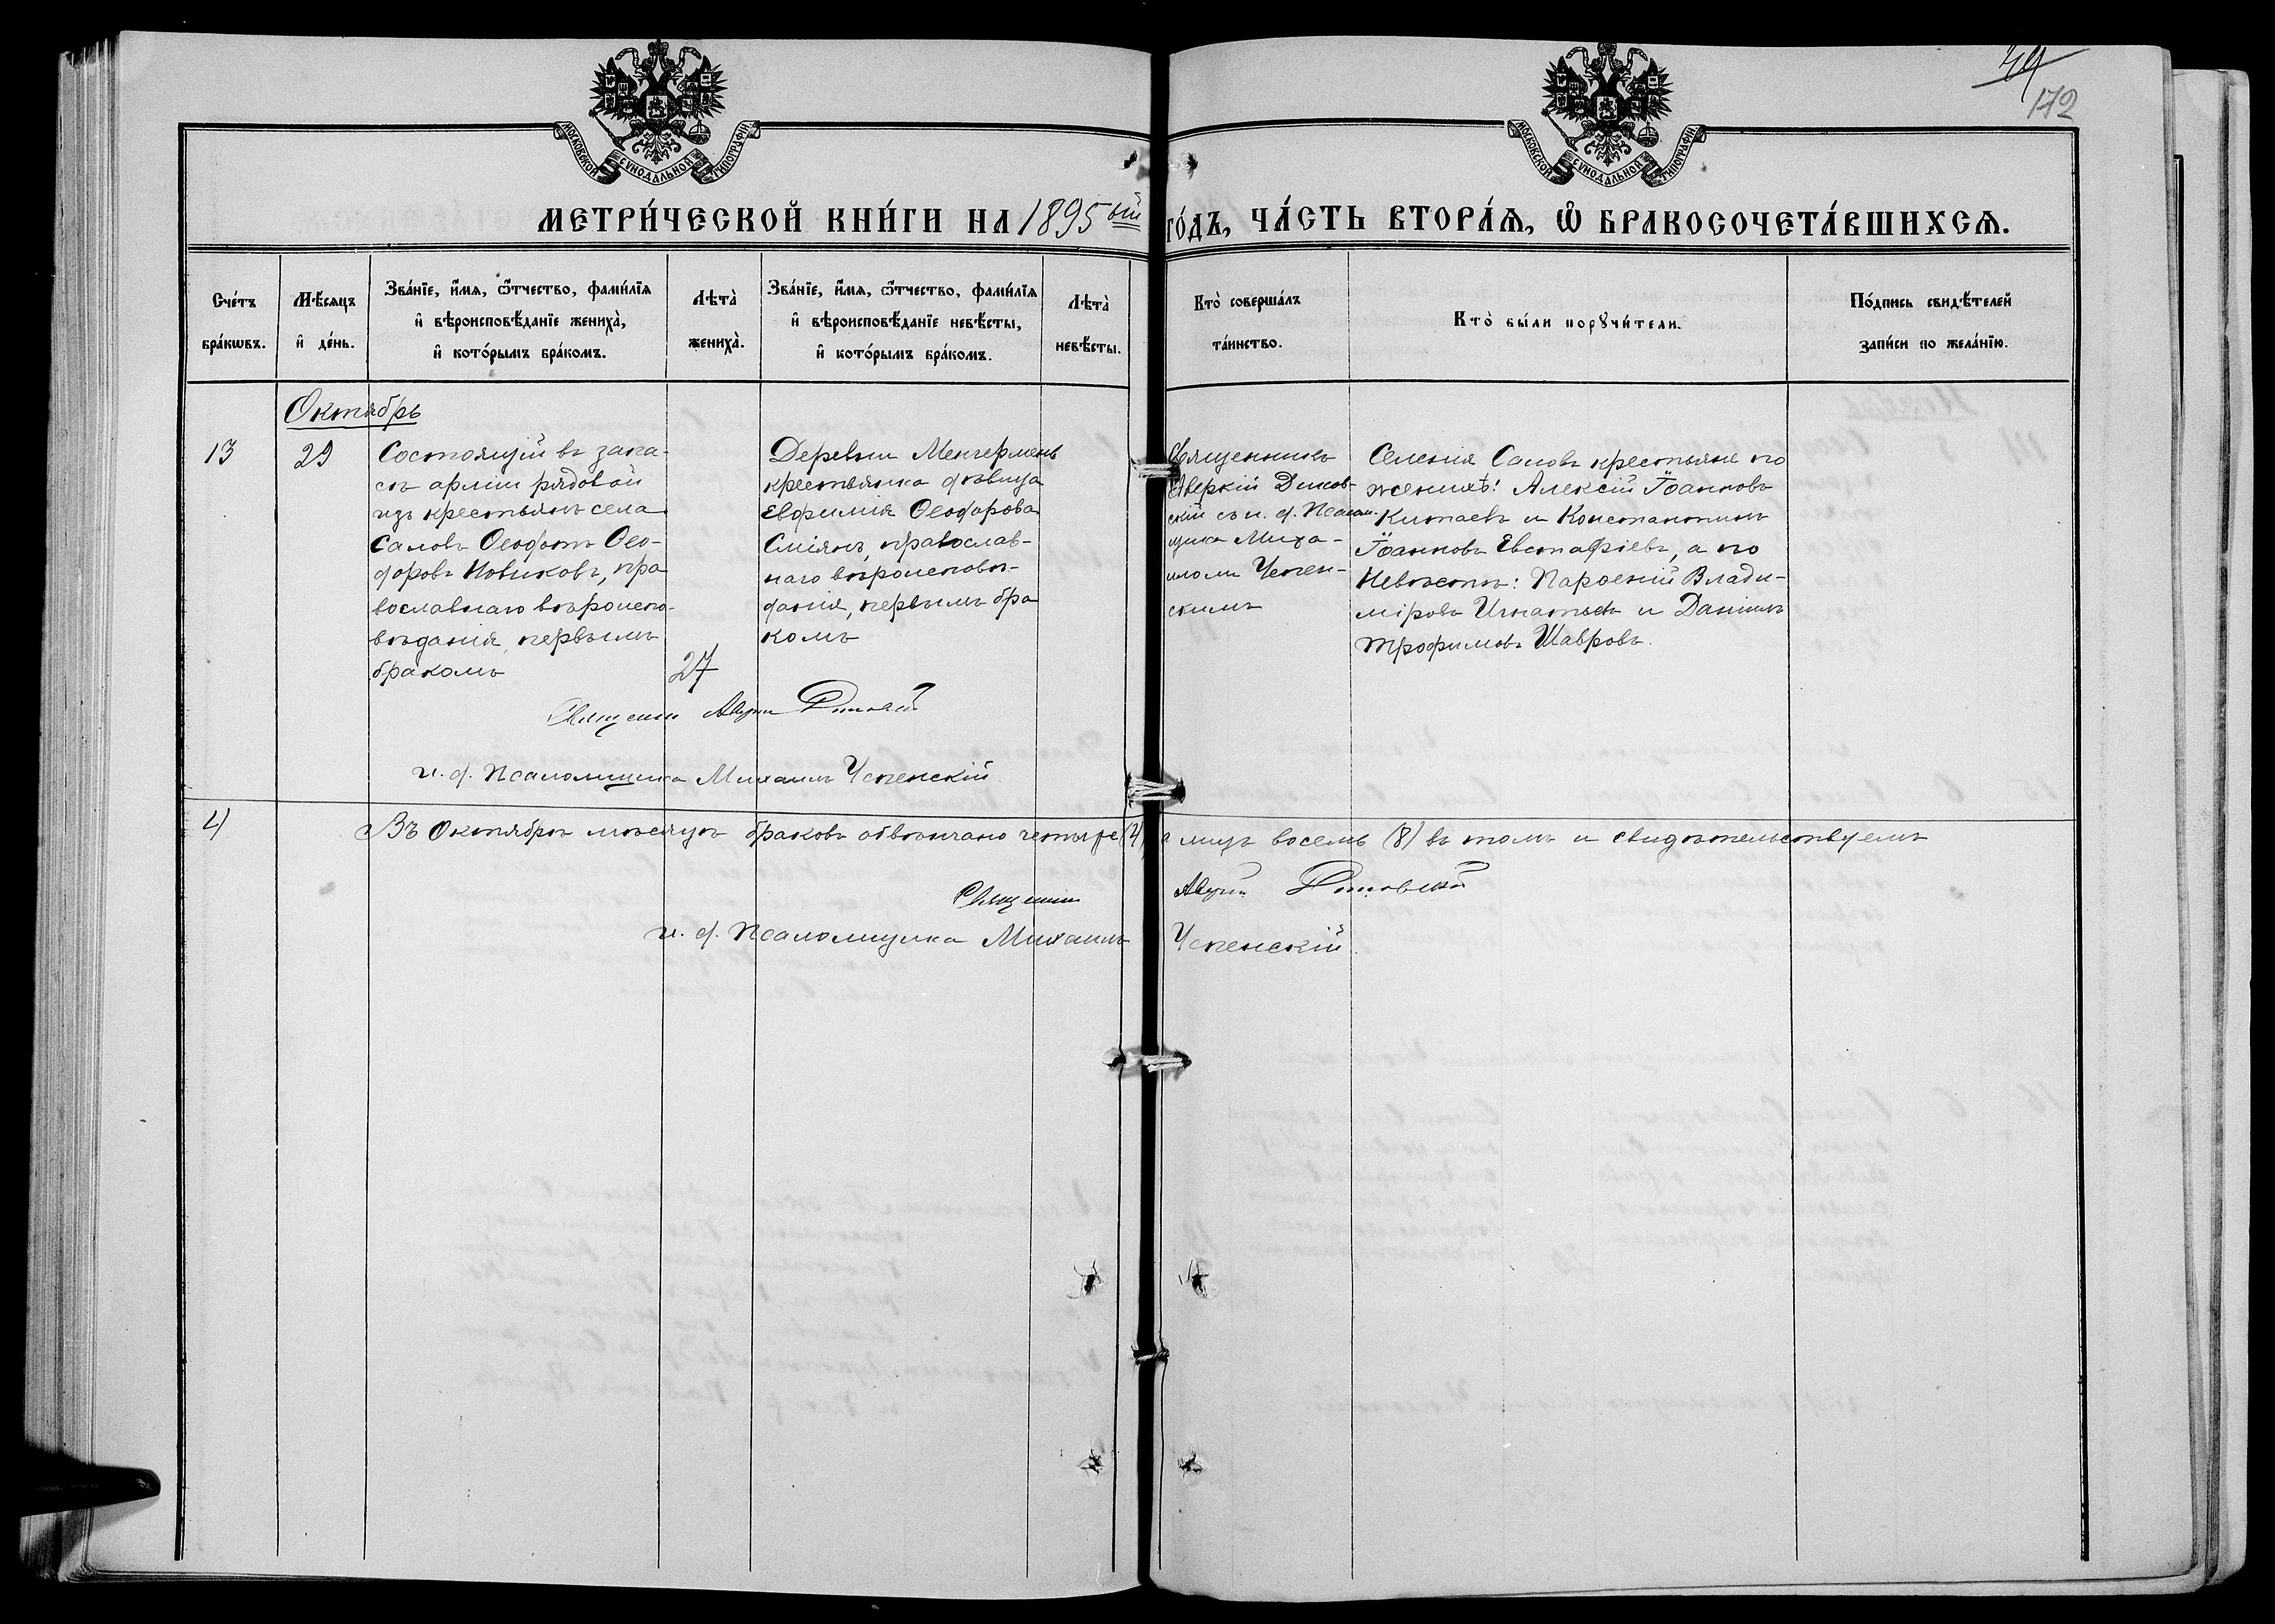 49
172
МОСКОВСКОЙ СѴНОДАЛЬНОЙ ТИПОГРАФІИ
МОСКОВСКОЙ СѴНОДАЛЬНОЙ ТИПОГРАФІИ
МЕТРИ́ЧЕСКОЙ КНИ́ГИ НА 1895ый ГО́ДЪ, ЧА́СТЬ ВТОРА́Ѧ, Ѽ БРАКОСОЧЕТА́ВШИХСѦ.
Сче́тъ
бра́кѡвъ.
Мѣ́сяцъ
и҆ де́нь.
Зва́нїе, и҆́мѧ, ѻ҆́тчество, фами́лїѧ
и҆ вѣроисповѣ́данїе жениха̀,
и҆ кото́рымъ бра́комъ.
Лѣта̀
жениха̀.
Зва́нїе, и҆́мѧ, ѻ҆́тчество, фами́лїѧ
и҆ вѣроисповѣ́данїе невѣ́сты,
и҆ кото́рымъ бра́комъ.
Лѣта̀
невѣ́сты.
Кто̀ соверша́лъ
та́инство.
Кто̀ бы́ли порꙋчи́тели.
По́дпись свидѣ́телей
за́писи по жела́нїю.
Октябрь
13
29
Состоящій въ запа-
сѣ арміи рядовой
изъ крестьянъ села
Салов Ѳеодотъ Ѳео-
доровъ Новиковъ, пра
вославнаго вѣроиспо-
вѣданія, первымъ
бракомъ
27
Деревни Менчермень
крестьянка дѣвица
Евфимія Ѳеодорова
православ-
наго вѣроисповѣ-
данія, первымъ бра
комъ
Священникъ
Аверкій Димов-
скій съ и. д. Псалом-
щика Миха-
иломъ Успен-
скимъ
Селенія Салов крестьяне по
женихѣ: Алексій Іоанновъ
Китаевъ и Константинъ
Іоанновъ Евстафіевъ, а по
Невѣстѣ: Парѳеній Влади-
міровъ Игнатьев и Даніилъ
Трофимовъ Шавровъ.
Священникъ Аверкій Димовскій
и. д. Псаломщика Михаилъ Успенскій.
4)
Въ Октябрѣ мѣсяцѣ браковъ обвѣнчано четыре (4), а лицъ восемь (8) въ томъ и свидѣтельствуемъ
Священникъ Аверкій Димовскій
и. д. Псаломщика Михаилъ Успенскій.